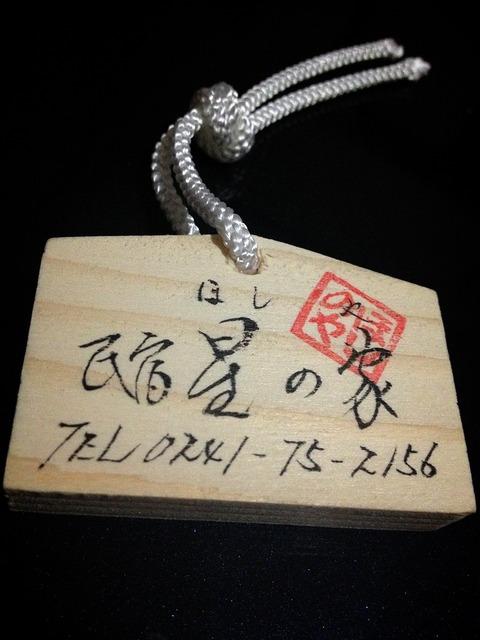 ほし　や
民宿星の家
TEL 0241-75-2156
ほし
のや